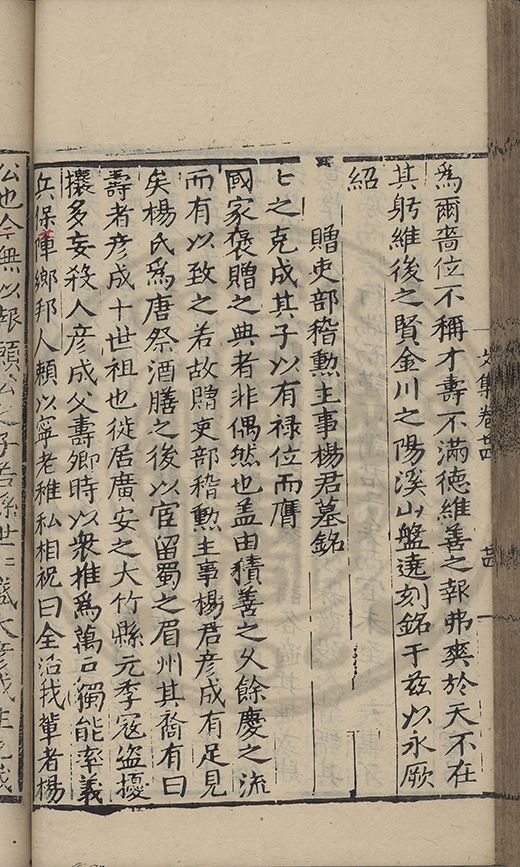 爲爾嗇位不稱才壽不滿德維善之報弗爽於天不在
其躬維後之賢金川之陽溪山盤遶刻銘于兹以永厥
紹
贈吏部稽勲主事楊君墓銘
士之克成其子以有禄位而膺
國家褒贈之典者非偶然也盖由積善之久餘慶之流
而有以致之若故贈吏部稽勲主事楊君彦成有足見
矣楊氏爲唐祭酒膳之後以官留蜀之眉州其裔有曰
壽者彦成十世祖也徙居廣安之大竹縣元季寇盗擾
攘多妄殺人彦成父壽卿時以衆推爲萬戸獨能率義
兵保障鄉邦人頼以寧老稚私相祝曰全活我輩者楊
公也今無以報願公之子若孫世二盛大彦成生
文集卷